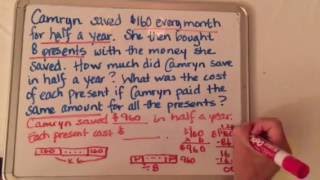 Camryn saved $160 every month
for half a year. She then bought
8 presents with the money she
saved. How much did Camryn save
in half a year? What was the cost
of each present if Camryn paid the
same amount for all the presents?
Camryn saved $960 in half a year.
Each present cost $
160 160
x 6
÷ 8
$160
x 6
$960